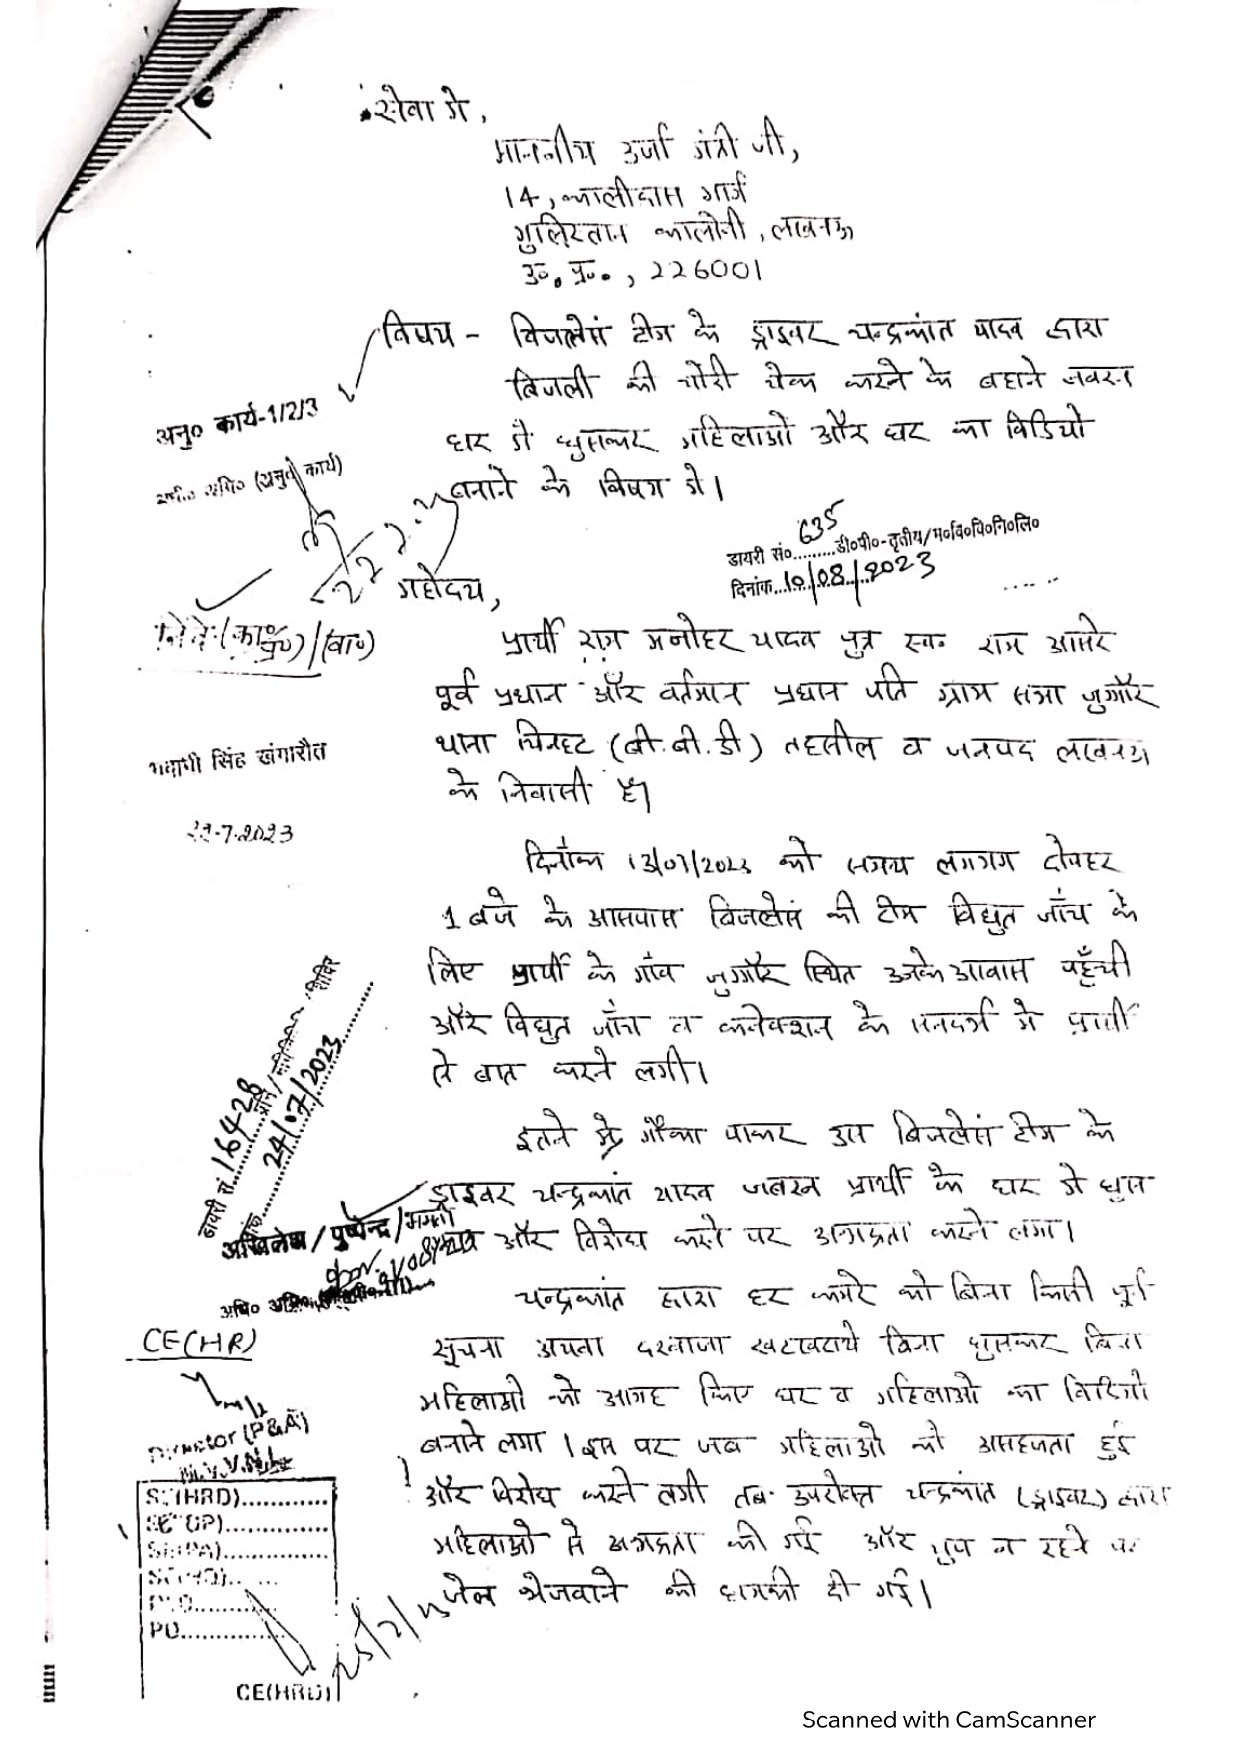 सेवा में,
माननीय उर्जा मंत्री जी,
14, कालीदास मार्ग
गुलिस्तान कालोनी, लखनऊ
उ०. प्र०., 226001
विषय - विजलेंस टीम के ड्राइवर चन्द्रकांत यादव द्वारा
बिजली की चोरी चेक करने के बहाने जबरन
घर में घुसकर महिलाओं और घर का विडियो
बनाने के विषय में।
अनु० कार्य-1/2/3
अधि० (अनु० कार्य)
डायरी सं०...635...डी०पी०-तृतीय/म०वि०वि०नि०लि०
दिनांक...10/08/2023
महोदय,
(वा०)
प्रार्थी राम मनोहर यादव पुत्र स्व० राम आसरे
पूर्व प्रधान और वर्तमान प्रधान पति ग्राम सभा जुग्गौर
थाना चिनहट (बी.बी.डी) तहसील व जनपद लखनऊ
के निवासी है।
भवानी सिंह खंगारौत
22-7-2023
दिनाँक 13/07/2023 को समय लगभग दोपहर
1 बजे के आसपास विजलेंस की टीम विद्युत जाँच के
लिए प्रार्थी के गाँव जुग्गौर स्थित उनके आवास पहुँची
और विद्युत जाँच व कनेक्शन के सन्दर्भ में प्रार्थी
से बात करने लगी।
डायरी सं. 16428
24/07/2023
इतने में मौका पाकर उस विजलेंस टीम के
ड्राइवर चन्द्रकांत यादव जबरन प्रार्थी के घर में घुस
अखिलेश / पुष्पेन्द्र / ममता
और विरोध करने पर अभद्रता करने लगा।
चन्द्रकांत द्वारा हर कमरे को बिना किसी पूर्व
सूचना अथवा दरवाजा खटखटाये बिना घुसकर बिना
महिलाओं को आगाह किए घर व महिलाओं का विडियो
बनाने लगा। इस पर जब महिलाओं को असहजता हुई
और विरोध करने लगी तब उपरोक्त चन्द्रकांत (ड्राइवर) द्वारा
महिलाओं से अभद्रता की गई और चुप न रहने पर
जेल भेजवाने की धमकी दी गई।
CE(HR)
Director (P&A)
M.V.V.N.L.
SE(HRD)............
SE(OP)..............
PO..............
CE(HRD)
Scanned with CamScanner